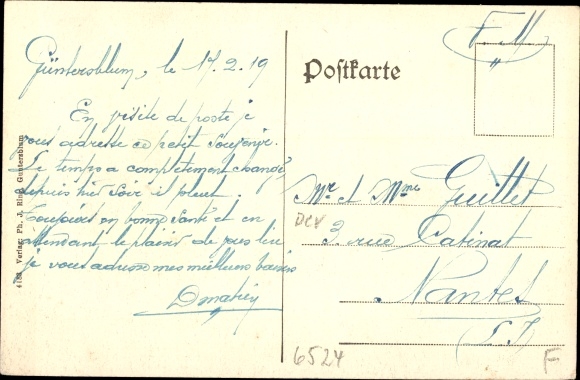 Güntersblum, le 17.2.19
En visite de poste je
vous adresse ce petit souvenir.
Le temps a complètement changé,
depuis hier soir il pleut.
Toujours en bonne santé et en
attendant le plaisir de vous lire
je vous adresse mes meilleurs baisers
4182 Verlag: Ph. J. Guntersblum
F.M
Postkarte
Mr et Mme Guillet
3. rue
Nantes
6524
F